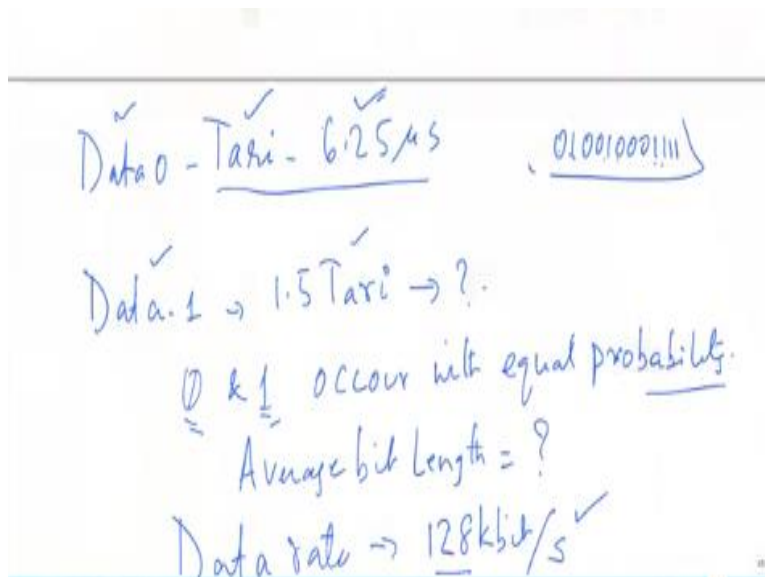 Data 0 - Tari - 6.25 μs 010010001111
Data. 1 → 1.5 Tari → ?.
0 & 1 occour with equal probability.
Average bit Length = ?
Data rate → 128 kbit/s